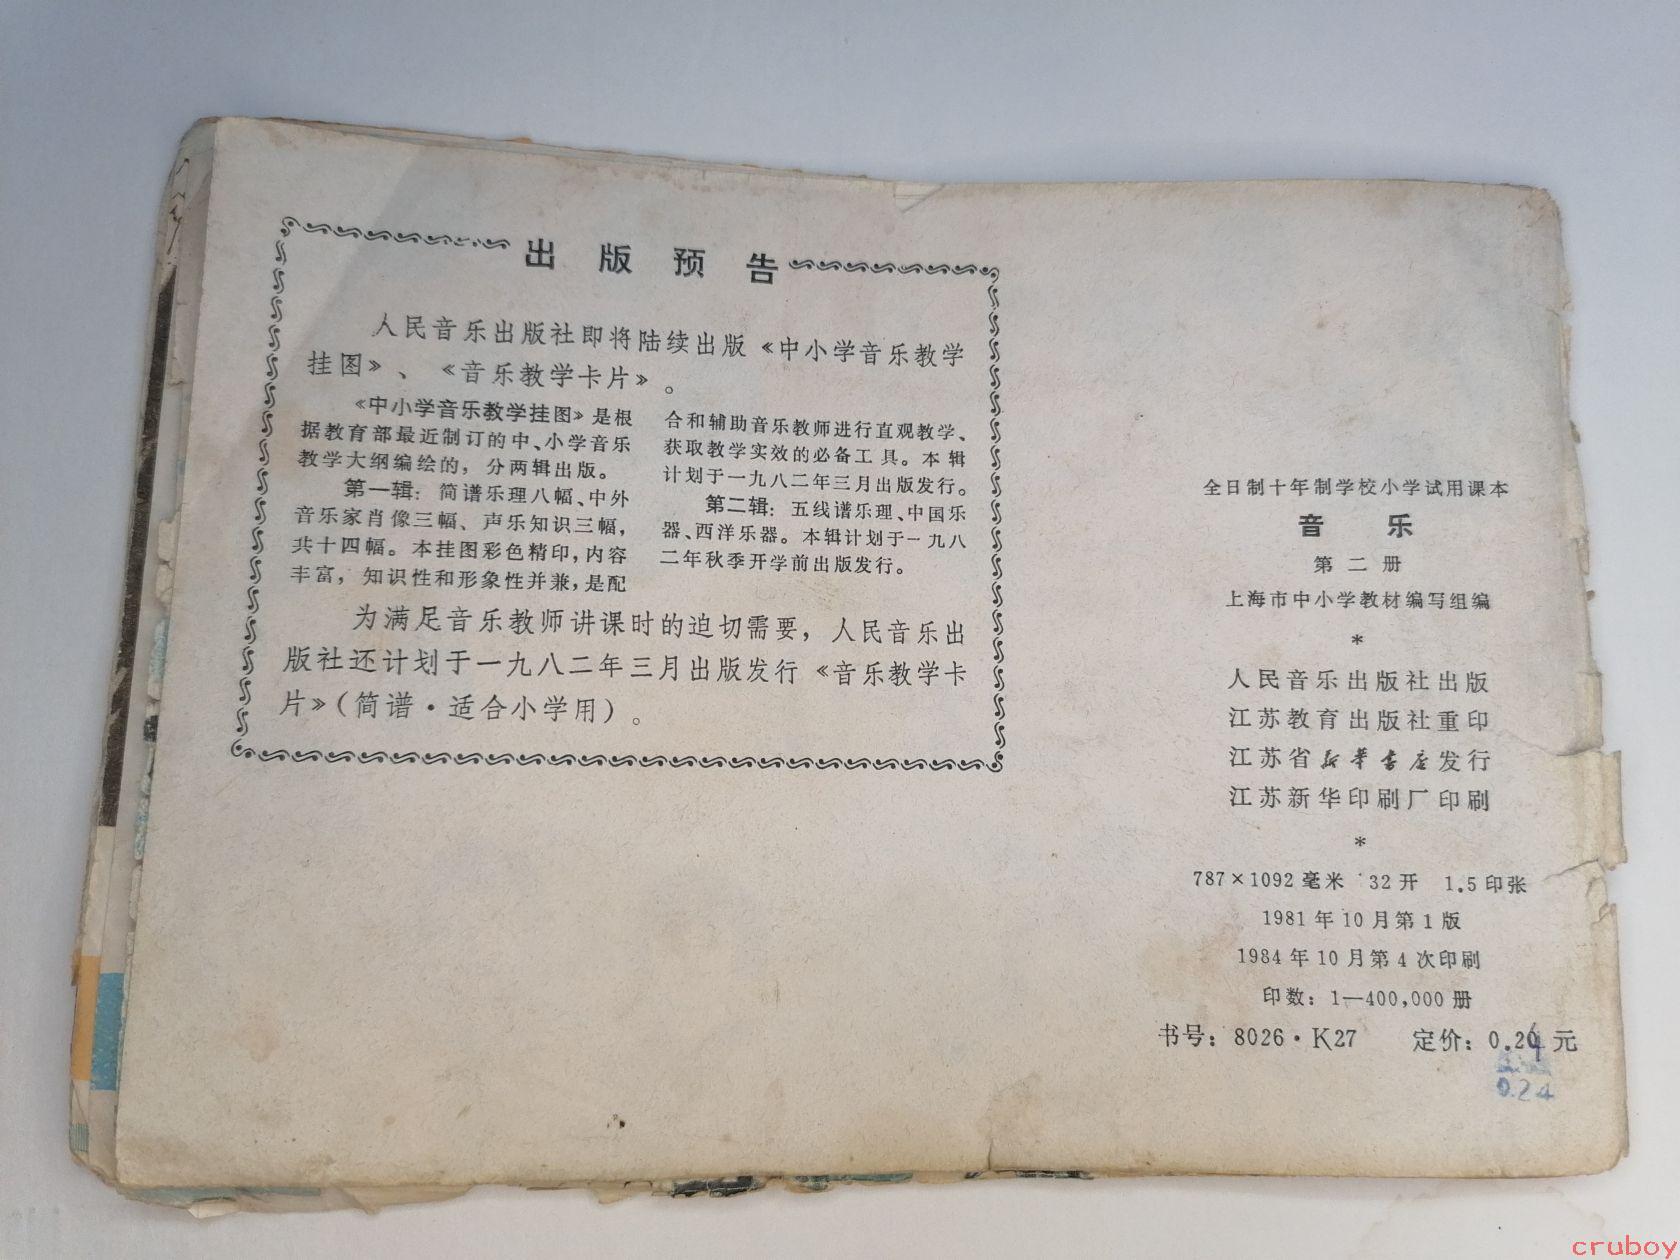 出版预告
人民音乐出版社即将陆续出版《中小学音乐教学
挂图》、《音乐教学卡片》。
《中小学音乐教学挂图》是根
据教育部最近制订的中、小学音乐
教学大纲编绘的，分两辑出版。
第一辑：简谱乐理八幅、中外
音乐家肖像三幅、声乐知识三幅，
共十四幅。本挂图彩色精印，内容
丰富，知识性和形象性并兼，是配
合和辅助音乐教师进行直观教学、
获取教学实效的必备工具。本辑
计划于一九八二年三月出版发行。
第二辑：五线谱乐理、中国乐
器、西洋乐器。本辑计划于一九八
二年秋季开学前出版发行。
为满足音乐教师讲课时的迫切需要，人民音乐出
版社还计划于一九八二年三月出版发行《音乐教学卡
片》（简谱·适合小学用）。
全日制十年制学校小学试用课本
音乐
第二册
上海市中小学教材编写组编
*
人民音乐出版社出版
江苏教育出版社重印
江苏省新华书店发行
江苏新华印刷厂印刷
*
787×1092毫米 32开 1.5印张
1981年10月第1版
1984年10月第4次印刷
印数：1—400,000册
书号：8026·K27 定价：0.24元
0.24
cruboy